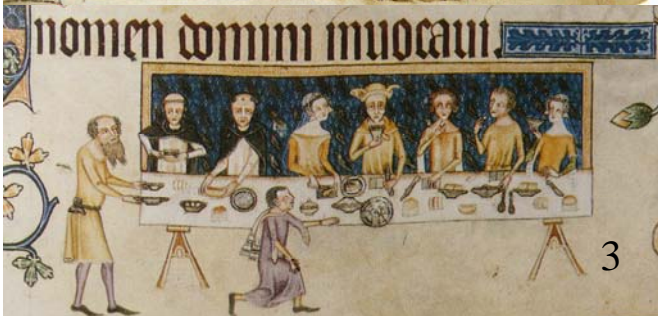 nomen domini inuocaui.
3